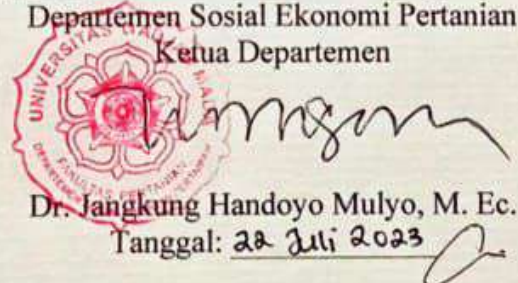 Departemen Sosial Ekonomi Pertanian
Ketua Departemen
UNIVERSITAS GADJAH MADA
FAKULTAS PERTANIAN
Dr. Jangkung Handoyo Mulyo, M. Ec.
Tanggal: 22 Juli 2023